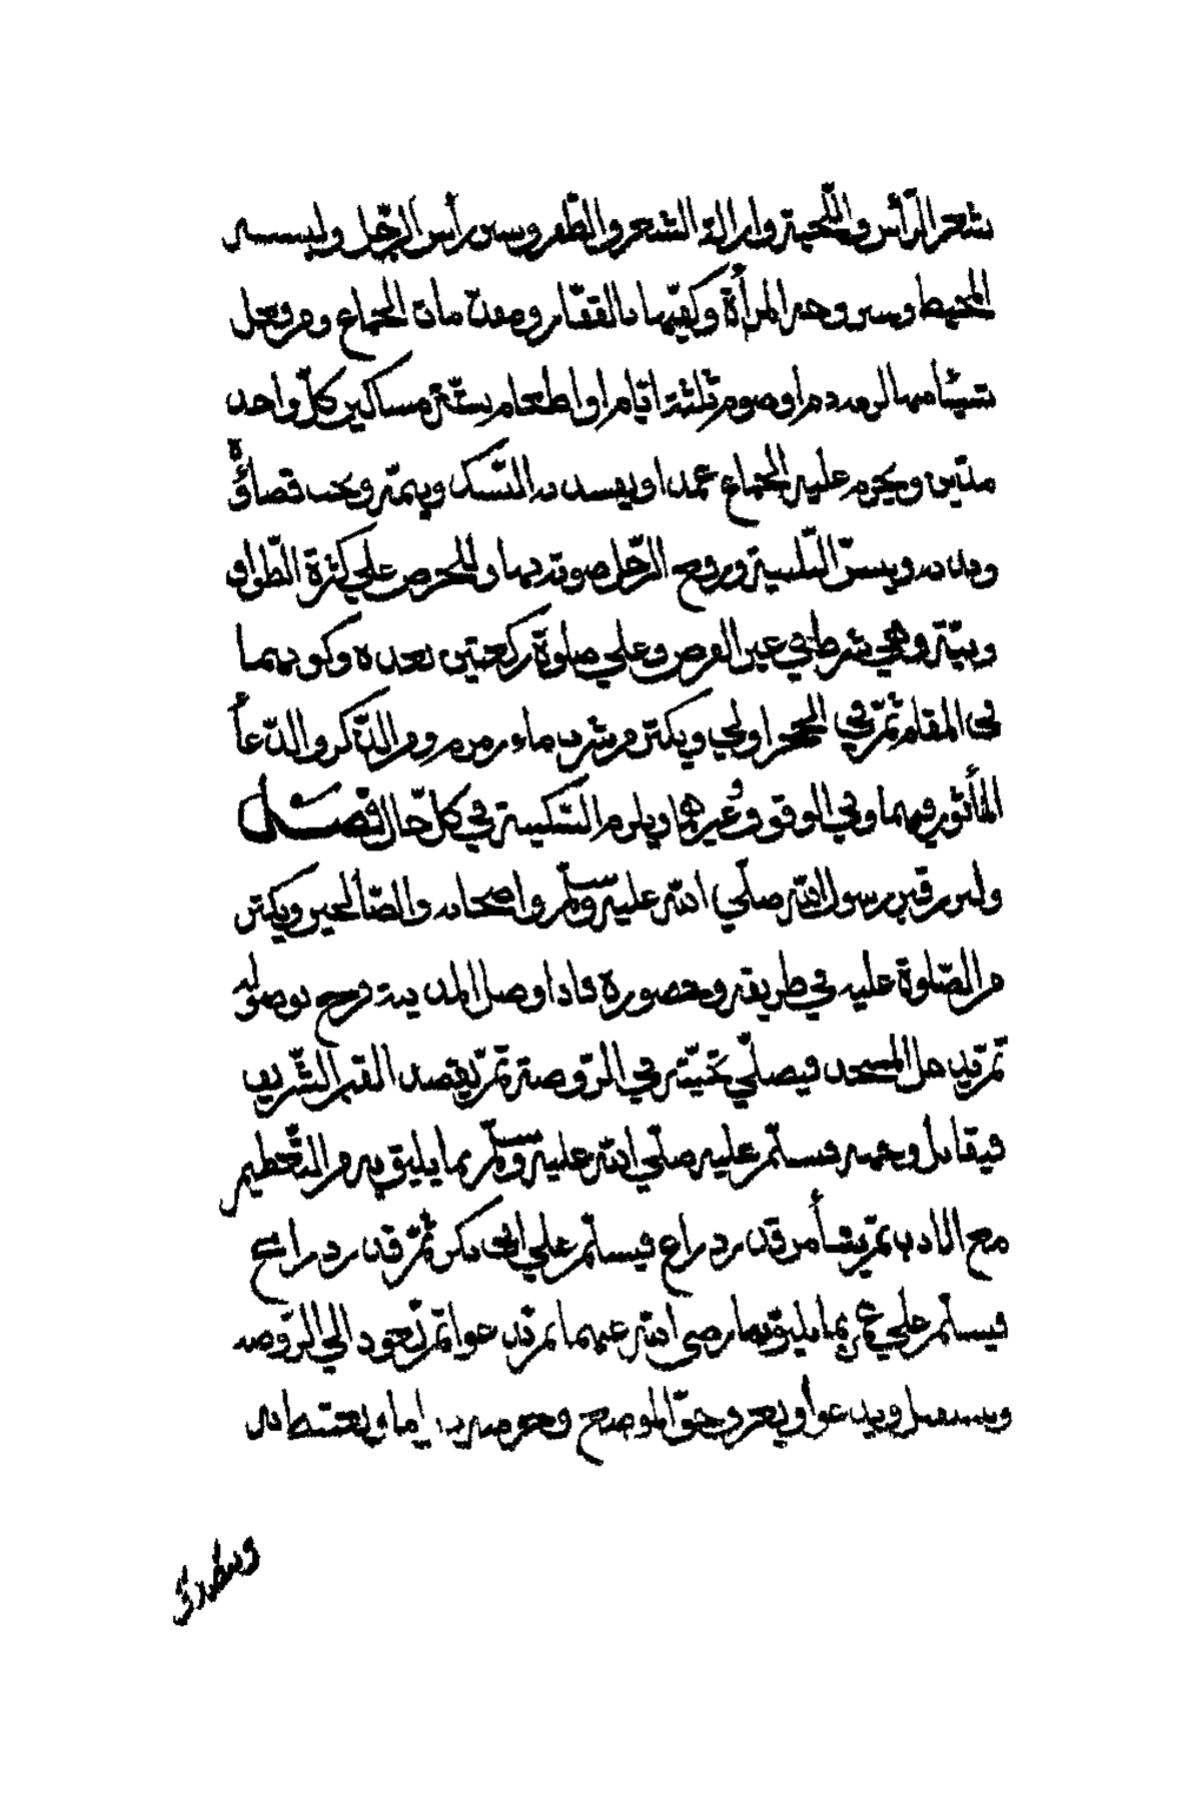 شعر الرّأس واللّحية وازالة الشعر والظّفر وستر رأس الرّجل ولبسه
المحيط وستر وجه المرأة وكفيها بالقفّاز ومقدّمات الجماع ومن فعل
شيئا منها لزمه دم او صوم ثلثة ايّام او اطعام ستّة مساكين كلّ واحد
مدّين ويحرم عليه الجماع عمدا ويفسد به النّسك ويتمّه ويجب قضاؤه
وبدنه ويسنّ التّلبية ورفع الرّجل صوته بها والحرص على كثرة الطّواف
ونيّته وهي شرط في غير الفرض وعلى صلوة ركعتين بعده وكونهما
في المقام ثمّ في الحجر اولى ويكثر من شرب ماء زمزم ومن الذّكر والدّعا
المأثور فيهما وفي الوقوف وغيرهما ويلزم السّكينة في كلّ حال فصل
وليزر قبر رسول الله صلّى الله عليه وسلّم واصحابه والصّالحين ويكثر
من الصّلوة عليه في طريقه وحضوره فاذا وصل المدينة فرح بوصوله
ثمّ يدخل المسجد فيصلّي تحيّته في الرّوضة ثمّ يقصد القبر الشّريف
فيقابل وجهه فيسلّم عليه صلّى الله عليه وسلّم بما يليق به من التّعظيم
مع الادب ثمّ يتأمن قدر ذراع فيسلّم على ابي بكر ثمّ قدر ذراع
فيسلّم على عمر بما يليق بهما رضى الله عنهما ثمّ يدعوا ثمّ يعود الى الرّوضه
ويدعوا ويعرف حقّ الموضع وحرمته